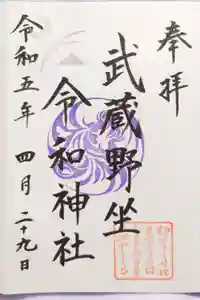 奉拝
武蔵野坐
令和神社
令和五年 四月 二十九日